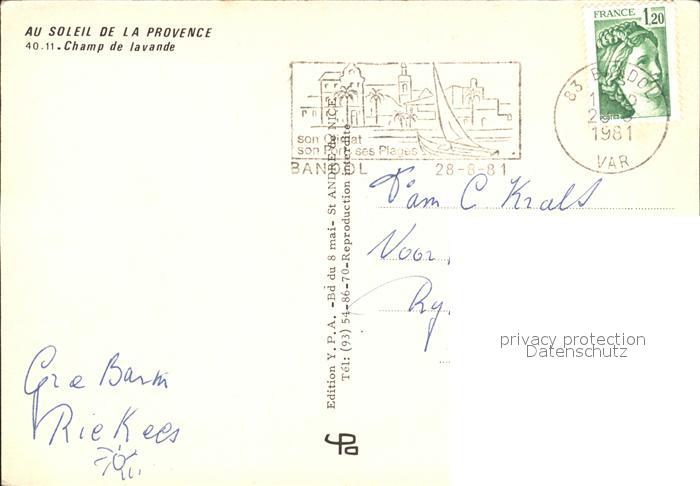 AU SOLEIL DE LA PROVENCE
40.11. Champ de lavande
FRANCE 1,20
83 BANDOL
1981
VAR
son
son Port, ses Plages
BANDOL 28-8-81
Edition Y.P.A. -Bd du 8 mai- St ANDRE de NICE
Tél: (93) 54-86-70-Reproduction interdite
Fam C Krals
Voor
Ry
privacy protection
Datenschutz
Rie Kees